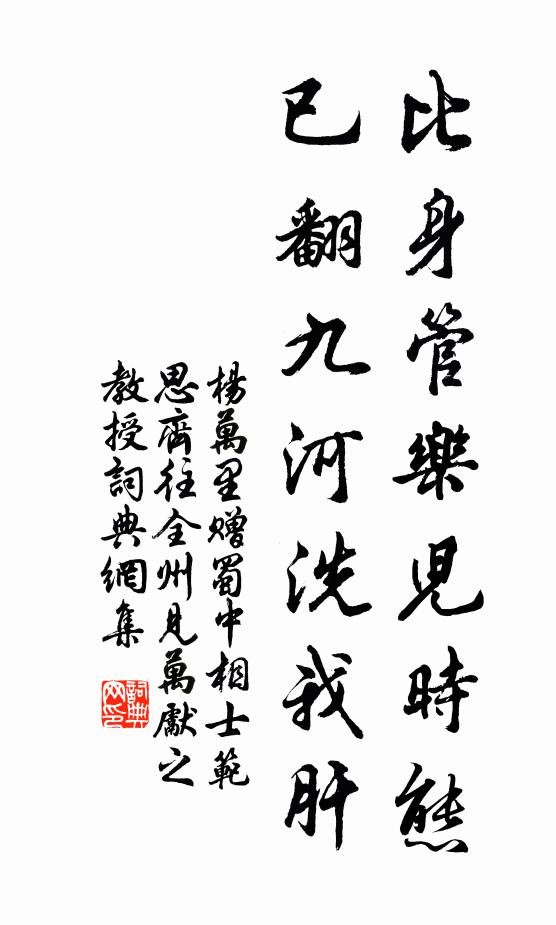 比身管樂兒時態
已翻九河洗我肝
楊萬里贈蜀中相士範
思齊往全州見萬獻之
教授詞典網集
詞典
网印